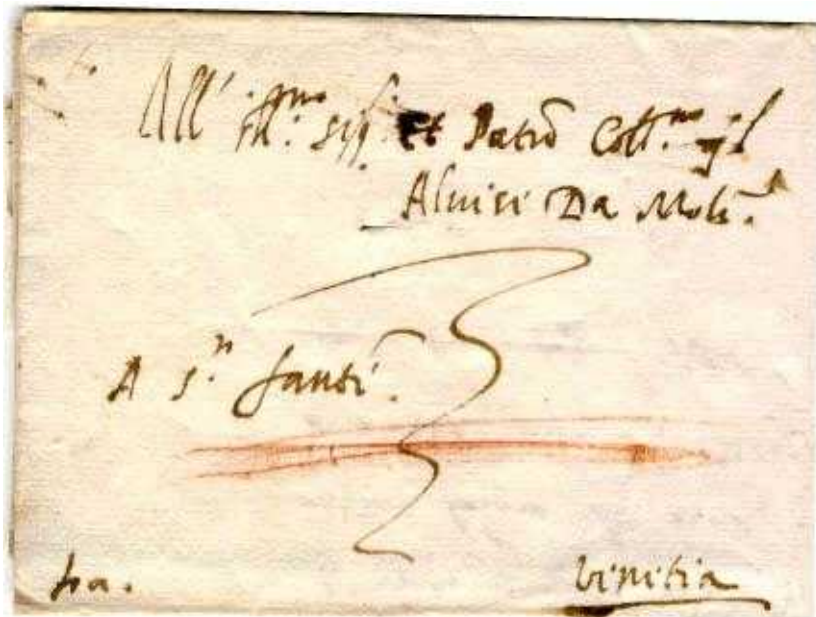 All' Ill.mo Sig. et Patrō Coll.mo
Aluise Da Moli.
A S.n fantī.
3
fra.
Venetia